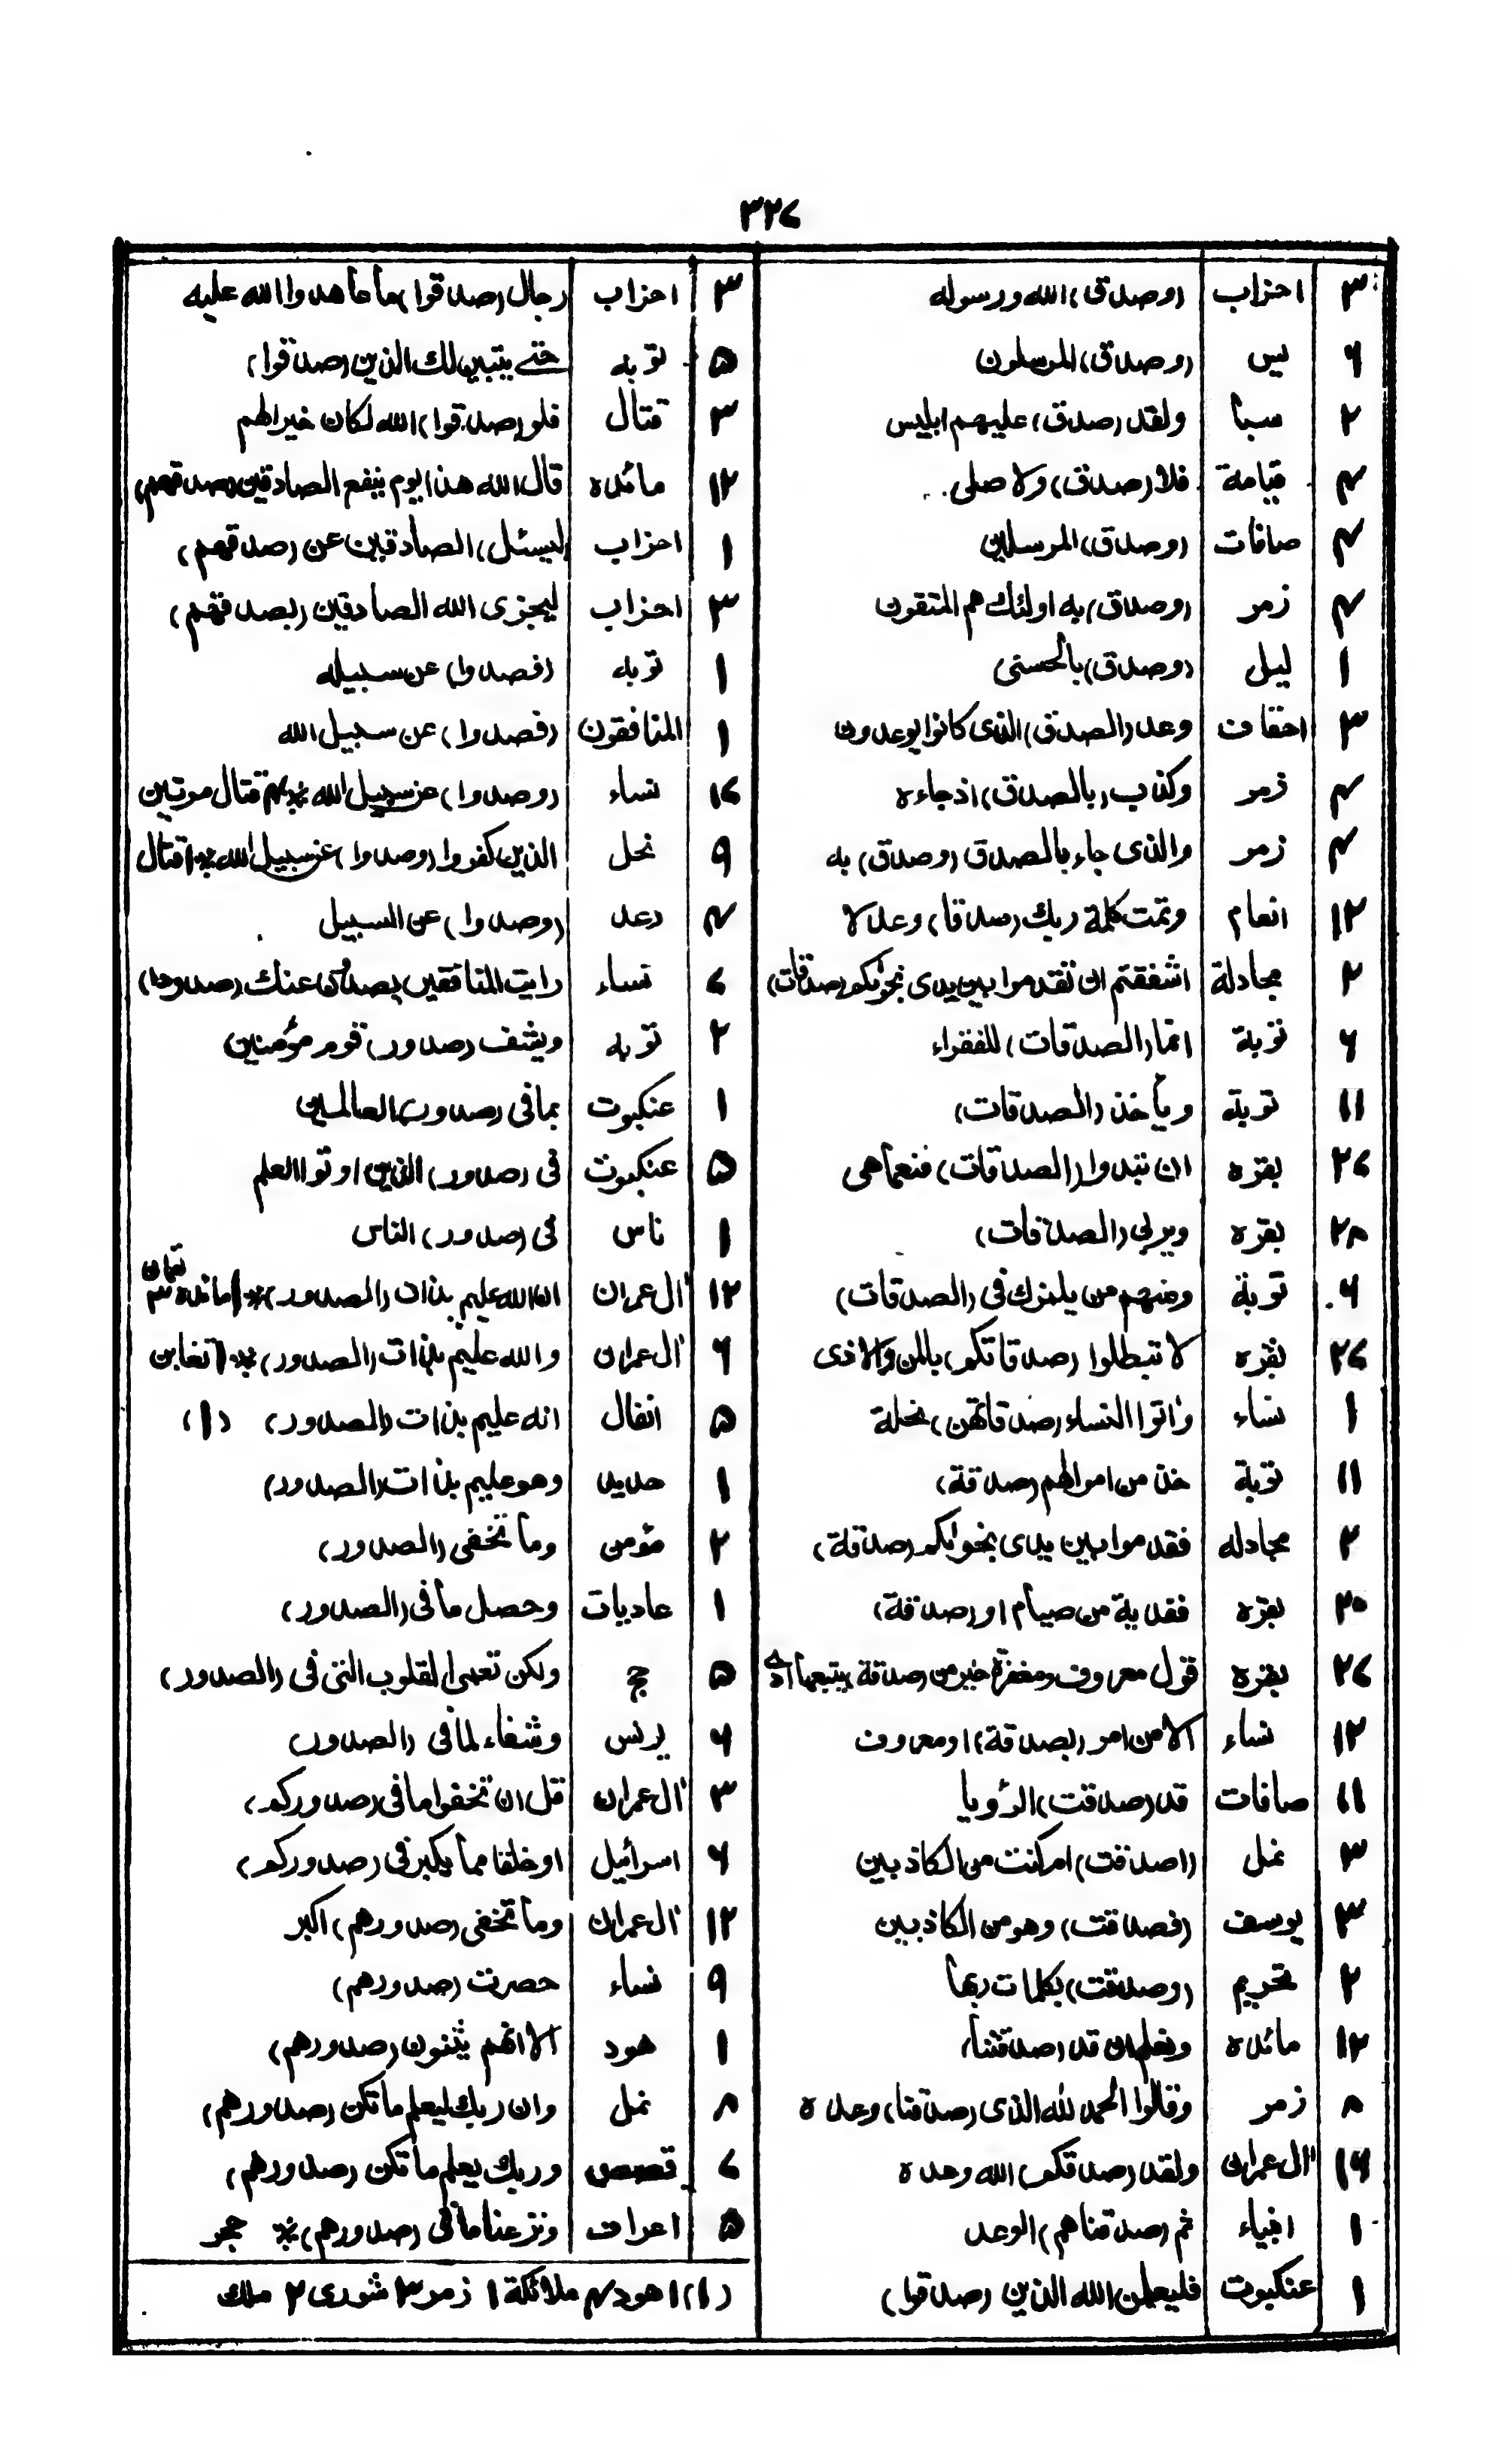 ٣٢٧
٣ احزاب (وصدق) الله ورسوله
۶ يس (وصدق) المرسلون
٢ سبأ ولقد (صدق) عليهم ابليس
۴ قيامة فلا (صدق) ولا صلى
۴ صافات (وصدق) المرسلين
۴ زمر (وصدق) به اولئك هم المتقون
١ ليل (وصدق) بالحسنى
٣ احقاف وعد (الصدق) الذى كانوا يوعدون
۴ زمر وكذب (بالصدق) اذ جاءه
۴ زمر والذى جاء بالصدق (وصدق) به
١٢ انعام وتمت كلمة ربك (صدقا) وعدلا
٢ مجادلة اشفقتم ان تقدموا بين يدى نجوىكم (صدقات)
۶ توبة انما (الصدقات) للفقراء
١١ توبة ويأخذ (الصدقات)
٢٧ بقره ان تبدوا (الصدقات) فنعماهى
٢٨ بقره ويربى (الصدقات)
۶ توبة ومنهم من يلمزك فى (الصدقات)
٢٧ بقره لا تبطلوا (صدقاتكم) بالمن والاذى
١ نساء واتوا النساء (صدقاتهن) نحلة
١١ توبة خذ من اموالهم (صدقة)
٢ مجادله فقدموا بين يدى نجوىكم (صدقة)
٢٥ بقره ففدية من صيام او (صدقة)
٢٧ بقره قول معروف ومغفرة خير من (صدقة) يتبعها اذى
١٢ نساء الا من امر (بصدقة) او معروف
١١ صافات قد (صدقت) الرؤيا
٣ نمل (اصدقت) ام كنت من الكاذبين
٣ يوسف (فصدقت) وهو من الكاذبين
٢ تحريم (وصدقت) بكلمات ربها
١٢ مائده ونعلم ان قد (صدقتنا)
٨ زمر وقالوا الحمد لله الذى (صدقنا) وعده
١۶ آل عمران ولقد (صدقكم) الله وعده
١ انبياء ثم (صدقناهم) الوعد
١ عنكبوت فليعلمن الله الذين (صدقوا)
٣ احزاب رجال (صدقوا) ما عاهدوا الله عليه
۵ توبه حتى يتبين لك الذين (صدقوا)
٣ قتال فلو (صدقوا) الله لكان خيرا لهم
١٢ مائده قال الله هذا يوم ينفع الصادقين (صدقهم)
١ احزاب ليسئل) الصادقين عن (صدقهم)
٣ احزاب ليجزى الله الصادقين (بصدقهم)
١ توبه (فصدوا) عن سبيله
١ المنافقون (فصدوا) عن سبيل الله
١٧ نساء (وصدوا) عن سبيل الله ۴ قتال موتين
٩ نحل الذين كفروا (وصدوا) عن سبيل الله ١ قتال
۴ رعد (وصدوا) عن السبيل
٧ نساء رايت المنافقين يصدون عنك (صدودا)
٢ توبه ويشف (صدور) قوم مؤمنين
١ عنكبوت بما فى (صدور) العالمين
۵ عنكبوت فى (صدور) الذين اوتوا العلم
١ ناس فى (صدور) الناس
١٢ آل عمران ان الله عليم بذات (الصدور) مائده ٣ لقمان
۶ آل عمران والله عليم بذات (الصدور) ١ تغابن
۵ انفال انه عليم بذات (الصدور) (١)
١ حديد وهو عليم بذات (الصدور)
٢ مؤمن وما تخفى (الصدور)
١ عاديات وحصل ما فى (الصدور)
۵ حج ولكن تعمى القلوب التى فى (الصدور)
۶ يونس وشفاء لما فى (الصدور)
٣ آل عمران قل ان تخفوا ما فى (صدوركم)
۶ اسرائيل او خلقا مما يكبر فى (صدوركم)
١٢ آل عمران وما تخفى (صدورهم) اكبر
٩ نساء حصرت (صدورهم)
١ هود الا انهم يثنون (صدورهم)
٨ نمل وان ربك ليعلم ما تكن (صدورهم)
٧ قصص وربك يعلم ما تكن (صدورهم)
۵ اعراف ونزعنا ما فى (صدورهم) حجر
(١) ١ هود ۴ ملائكة ١ زمر ٣ شورى ٢ ملك